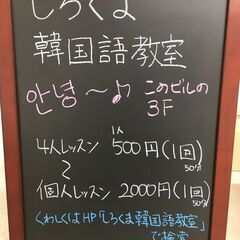 しろくま
韓国語教室
안녕〜♪ このビルの
3F
1人
4人レッスン 500円(1回)
50分
〜
個人レッスン 2000円(1回)
50分
くわしくはHP「しろくま韓国語教室」
で検索